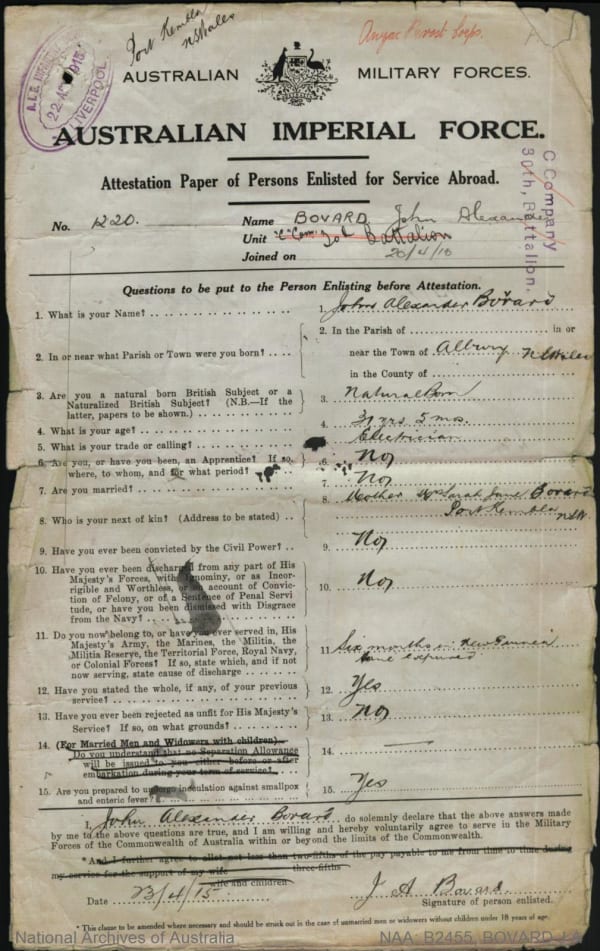 Port Kembla
NSWales
Anzac Provost Corps.
LIVERPOOL
AUSTRALIAN MILITARY FORCES.
AUSTRALIAN IMPERIAL FORCE.
Attestation Paper of Persons Enlisted for Service Abroad.
C Company
30th, Battalion.
No. 1220. Name BOVARD John Alexander
Unit "C" Com: 30th Battalion
Joined on 20/4/15
Questions to be put to the Person Enlisting before Attestation.
1. What is your Name? 1. John Alexander Bovard
2. In or near what Parish or Town were you born? 2. In the Parish of in or
near the Town of Albury NSWales
in the County of
3. Are you a natural born British Subject or a
Naturalized British Subject? (N.B.—If the
latter, papers to be shown.) 3. Natural Born
4. What is your age? 4. 31 yrs 5 ms.
5. What is your trade or calling? 5. Electrician
6. Are you, or have you been, an Apprentice? If so,
where, to whom, and for what period? 6. No
7. Are you married? 7. No
8. Who is your next of kin? (Address to be stated) 8. Mother Mrs Sarah Jane Bovard
Port Kembla NSW
9. Have you ever been convicted by the Civil Power? 9. No
10. Have you ever been discharged from any part of His
Majesty's Forces, with Ignominy, or as Incor-
rigible and Worthless, or on account of Convic-
tion of Felony, or of a Sentence of Penal Servi-
tude, or have you been dismissed with Disgrace
from the Navy? 10. No
11. Do you now belong to, or have you ever served in, His
Majesty's Army, the Marines, the Militia, the
Militia Reserve, the Territorial Force, Royal Navy,
or Colonial Forces? If so, state which, and if not
now serving, state cause of discharge 11. Six months in New Guinea
time expired
12. Have you stated the whole, if any, of your previous
service? 12. Yes
13. Have you ever been rejected as unfit for His Majesty's
Service? If so, on what grounds? 13. No
14. (For Married Men and Widowers with children)—
Do you understand that no Separation Allowance
will be issued to you either before or after
embarkation during your term of service? 14. —
15. Are you prepared to undergo inoculation against smallpox
and enteric fever? 15. Yes
I, John Alexander Bovard do solemnly declare that the above answers made
by me to the above questions are true, and I am willing and hereby voluntarily agree to serve in the Military
Forces of the Commonwealth of Australia within or beyond the limits of the Commonwealth.
*And I further agree to allot not less than two-fifths of the pay payable to me from time to time during
three-fifths
my service for the support of my wife
wife and children
Date 23/4/15 J A Bovard
Signature of person enlisted.
* This clause to be amended where necessary and should be struck out in the case of unmarried men or widowers without children under 18 years of age.
National Archives of Australia NAA: B2455, BOVARD J A